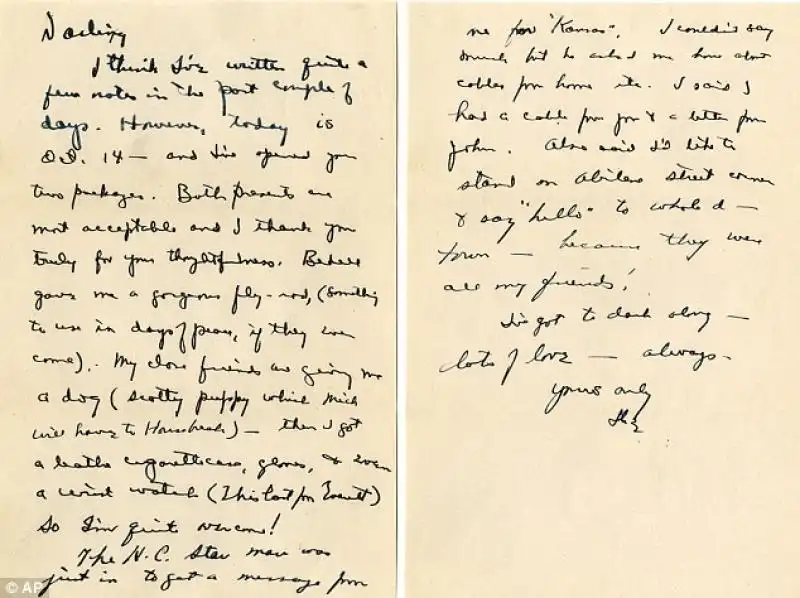 Darling
I think I've written quite a
few notes in the past couple of
days. However, today is
Oct. 14 — and I've opened your
two packages. Both presents are
most acceptable and I thank you
truly for your thoughtfulness.
gave me a gorgeous fly-rod, (something
to use in days of peace, if they ever
come). My close friends are giving me
a dog (scotty puppy which Mick
will have to Housebreak) — then I got
a leather cigarettecase, gloves, & even
a wrist watch (This last from Everett)
So I'm quite overcome!
The K.C. Star man was
just in to get a message from
me for "Kansas". I couldn't say
much but he asked me how about
cables from home etc. I said I
had a cable from you & a letter from
John. Also said I'd like to
stand on Abilene street corner
& say "hello" to whole d—
town — because they were
all my friends!
I've got to dash along —
lots of love — always —
yours only
Ike
© AP